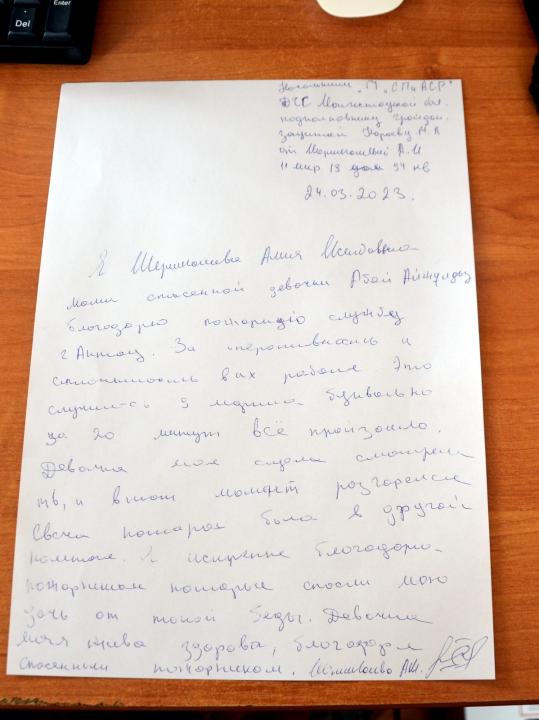 Del
Enter
Начальнику "ГУ "СПиАСР"
ДЧС Мангистауской обл.
подполковнику граждан.
защиты М.
от А.И
11 мкр 19 дом 94 кв
24.03.2023.
Я Алия
мама спасенной девочки Абай Айжулдыз
благодарю пожарную службу
г Актау. За оперативность и
сплоченность в их работе. Это
случилось 9 марта буквально
за 20 минут всё произошло.
Девочка моя сидела смотрела
тв, и в этот момент разгорелся
Свеча которая была в другой
комнате. Я искренне благодарю
пожарникам которые спасли мою
дочь от такой беды. Девочка
моя жива здорова, благодаря
спасенным пожарникам.